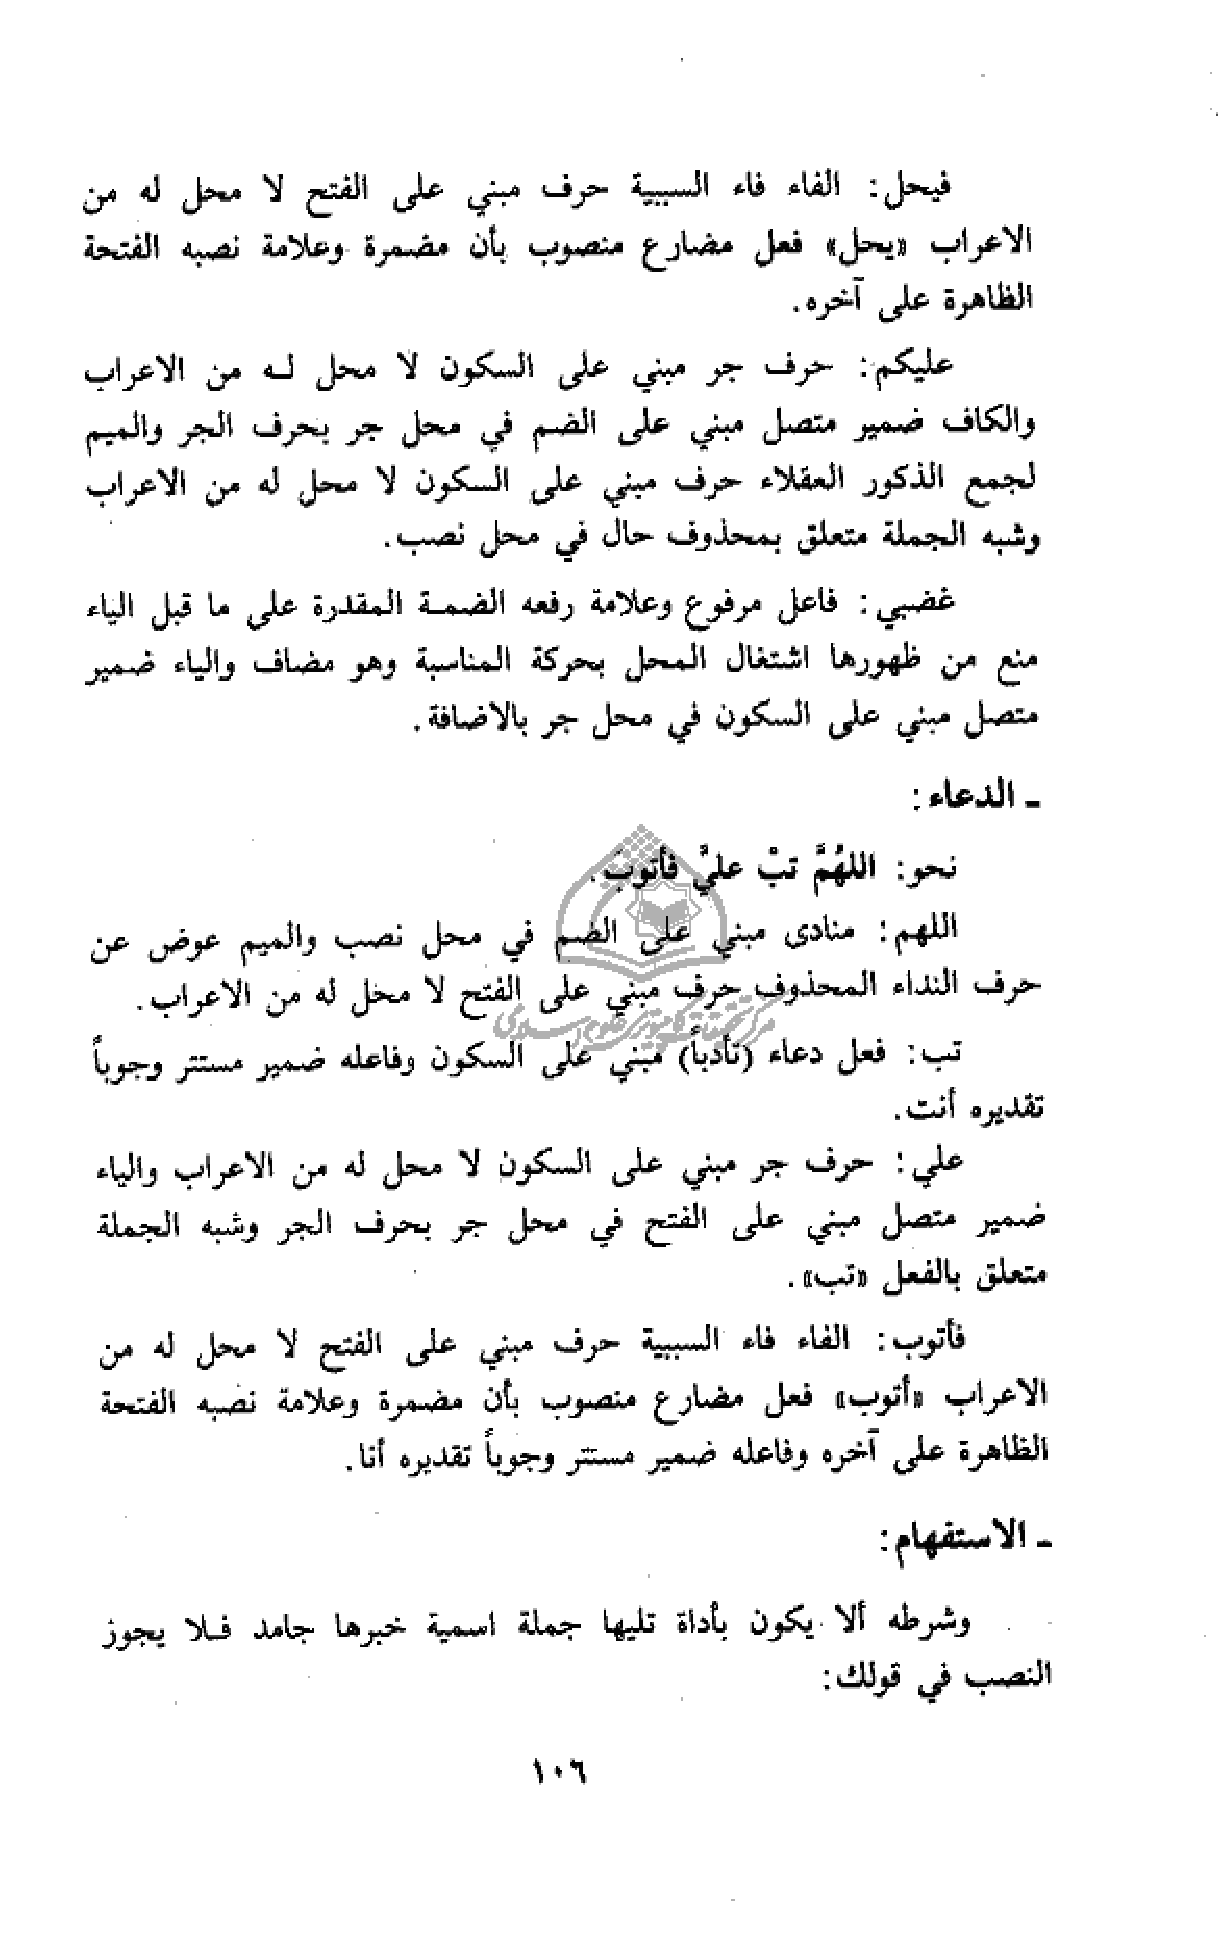 فيحل: الفاء فاء السببية حرف مبني على الفتح لا محل له من
الاعراب «يحل» فعل مضارع منصوب بأن مضمرة وعلامة نصبه الفتحة
الظاهرة على آخره.
عليكم: حرف جر مبني على السكون لا محل لـه من الاعراب
والكاف ضمير متصل مبني على الضم في محل جر بحرف الجر والميم
لجمع الذكور العقلاء حرف مبني على السكون لا محل له من الاعراب
وشبه الجملة متعلق بمحذوف حال في محل نصب.
غضبي: فاعل مرفوع وعلامة رفعه الضمـة المقدرة على ما قبل الياء
منع من ظهورها اشتغال المحل بحركة المناسبة وهو مضاف والياء ضمير
متصل مبني على السكون في محل جر بالاضافة.
ـ الدعاء:
نحو: اللهُمَّ تبْ عليَّ فأتوبَ.
اللهم: منادى مبني على الضم في محل نصب والميم عوض عن
حرف النداء المحذوف حرف مبني على الفتح لا محل له من الاعراب.
مركز تحقيقات كامپيوتری علوم اسلامی
تب: فعل دعاء (تأدباً) مبني على السكون وفاعله ضمير مستتر وجوباً
تقديره أنت.
علي: حرف جر مبني على السكون لا محل له من الاعراب والياء
ضمير متصل مبني على الفتح في محل جر بحرف الجر وشبه الجملة
متعلق بالفعل «تب».
فأتوب: الفاء فاء السببية حرف مبني على الفتح لا محل له من
الاعراب «أتوب» فعل مضارع منصوب بأن مضمرة وعلامة نصبه الفتحة
الظاهرة على آخره وفاعله ضمير مستتر وجوباً تقديره أنا.
ـ الاستفهام:
وشرطه ألا يكون بأداة تليها جملة اسمية خبرها جامد فـلا يجوز
النصب في قولك:
١٠٦